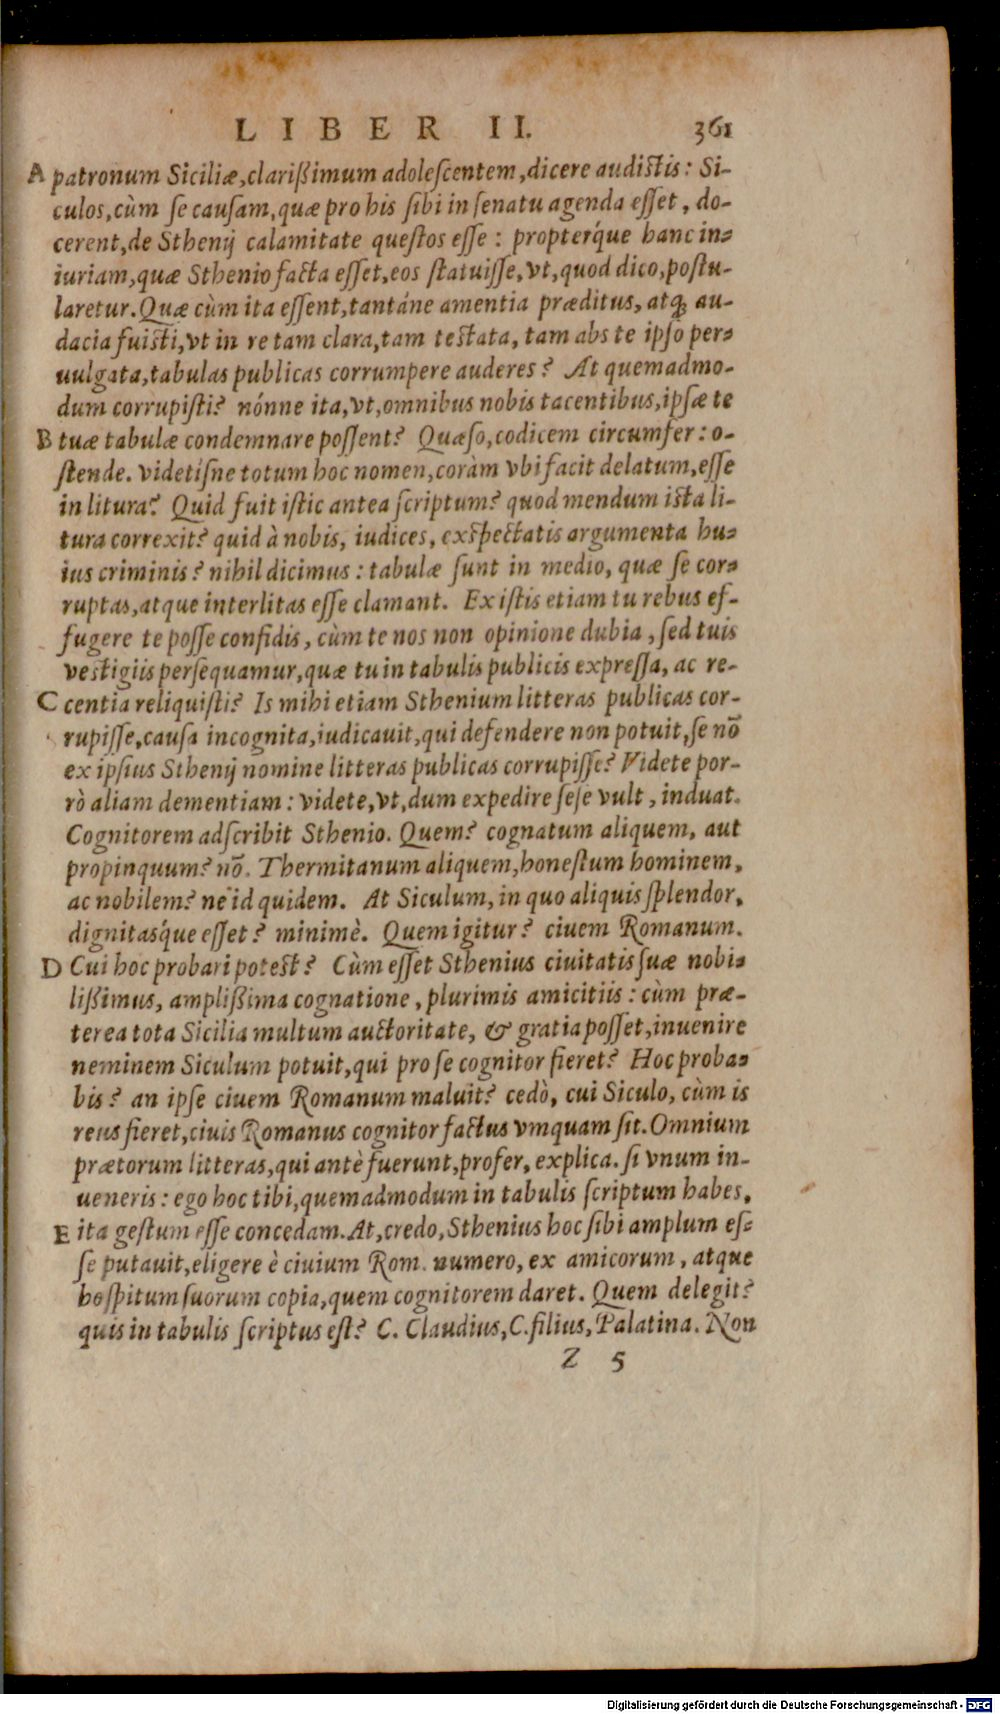 LIBER II. 361
A patronum Siciliæ, clarißimum adoleſcentem, dicere audiſtis: Si-
culos, cùm ſe cauſam, quæ pro his ſibi in ſenatu agenda eſſet, do-
cerent, de Sthenij calamitate queſtos eſſe: propteŕque hanc in-
iuriam, quæ Sthenio facta eſſet, eos ſtatuiſſe, vt, quod dico, poſtu-
laretur. Quæ cùm ita eſſent, tantáne amentia præditus, atq; au-
dacia fuiſti, vt in re tam clara, tam teſtata, tam abs te ipſo per-
uulgata, tabulas publicas corrumpere auderes? At quemadmo-
dum corrupiſti? nónne ita, vt, omnibus nobis tacentibus, ipſæ te
B tuæ tabulæ condemnare poſſent? Quæſo, codicem circumfer: o-
ſtende. videtíſne totum hoc nomen, coràm vbi facit delatum, eſſe
in litura? Quid fuit iſtic antea ſcriptum? quod mendum iſta li-
tura correxit? quid à nobis, iudices, exſpectatis argumenta hu-
ius criminis? nihil dicimus: tabulæ ſunt in medio, quæ ſe cor-
ruptas, atque interlitas eſſe clamant. Ex iſtis etiam tu rebus ef-
fugere te poſſe confidis, cùm te nos non opinione dubia, ſed tuis
veſtigiis perſequamur, quæ tu in tabulis publicis expreſſa, ac re-
C centia reliquiſti? Is mihi etiam Sthenium litteras publicas cor-
rupiſſe, cauſa incognita, iudicauit, qui defendere non potuit, ſe nō
ex ipſius Sthenij nomine litteras publicas corrupiſſe? Videte por-
rò aliam dementiam: videte, vt, dum expedire ſeſe vult, induat.
Cognitorem adſcribit Sthenio. Quem? cognatum aliquem, aut
propinquum? nō. Thermitanum aliquem, honeſtum hominem,
ac nobilem? ne id quidem. At Siculum, in quo aliquis ſplendor,
dignitaśque eſſet? minimè. Quem igitur? ciuem Romanum.
D Cui hoc probari poteſt? Cùm eſſet Sthenius ciuitatis ſuæ nobi-
lißimus, amplißima cognatione, plurimis amicitiis: cùm præ-
terea tota Sicilia multum auctoritate, & gratia poſſet, inuenire
neminem Siculum potuit, qui pro ſe cognitor fieret? Hoc proba-
bis? an ipſe ciuem Romanum maluit? cedò, cui Siculo, cùm is
reus fieret, ciuis Romanus cognitor factus vmquam ſit. Omnium
prætorum litteras, qui antè fuerunt, profer, explica. ſi vnum in-
ueneris: ego hoc tibi, quemadmodum in tabulis ſcriptum habes,
E ita geſtum eſſe concedam. At, credo, Sthenius hoc ſibi amplum eſ-
ſe putauit, eligere è ciuium Rom. numero, ex amicorum, atque
hoſpitum ſuorum copia, quem cognitorem daret. Quem delegit?
quis in tabulis ſcriptus eſt? C. Claudius, C. filius, Palatina. Non
Z 5
Digitalisierung gefördert durch die Deutsche Forschungsgemeinschaft - DFG